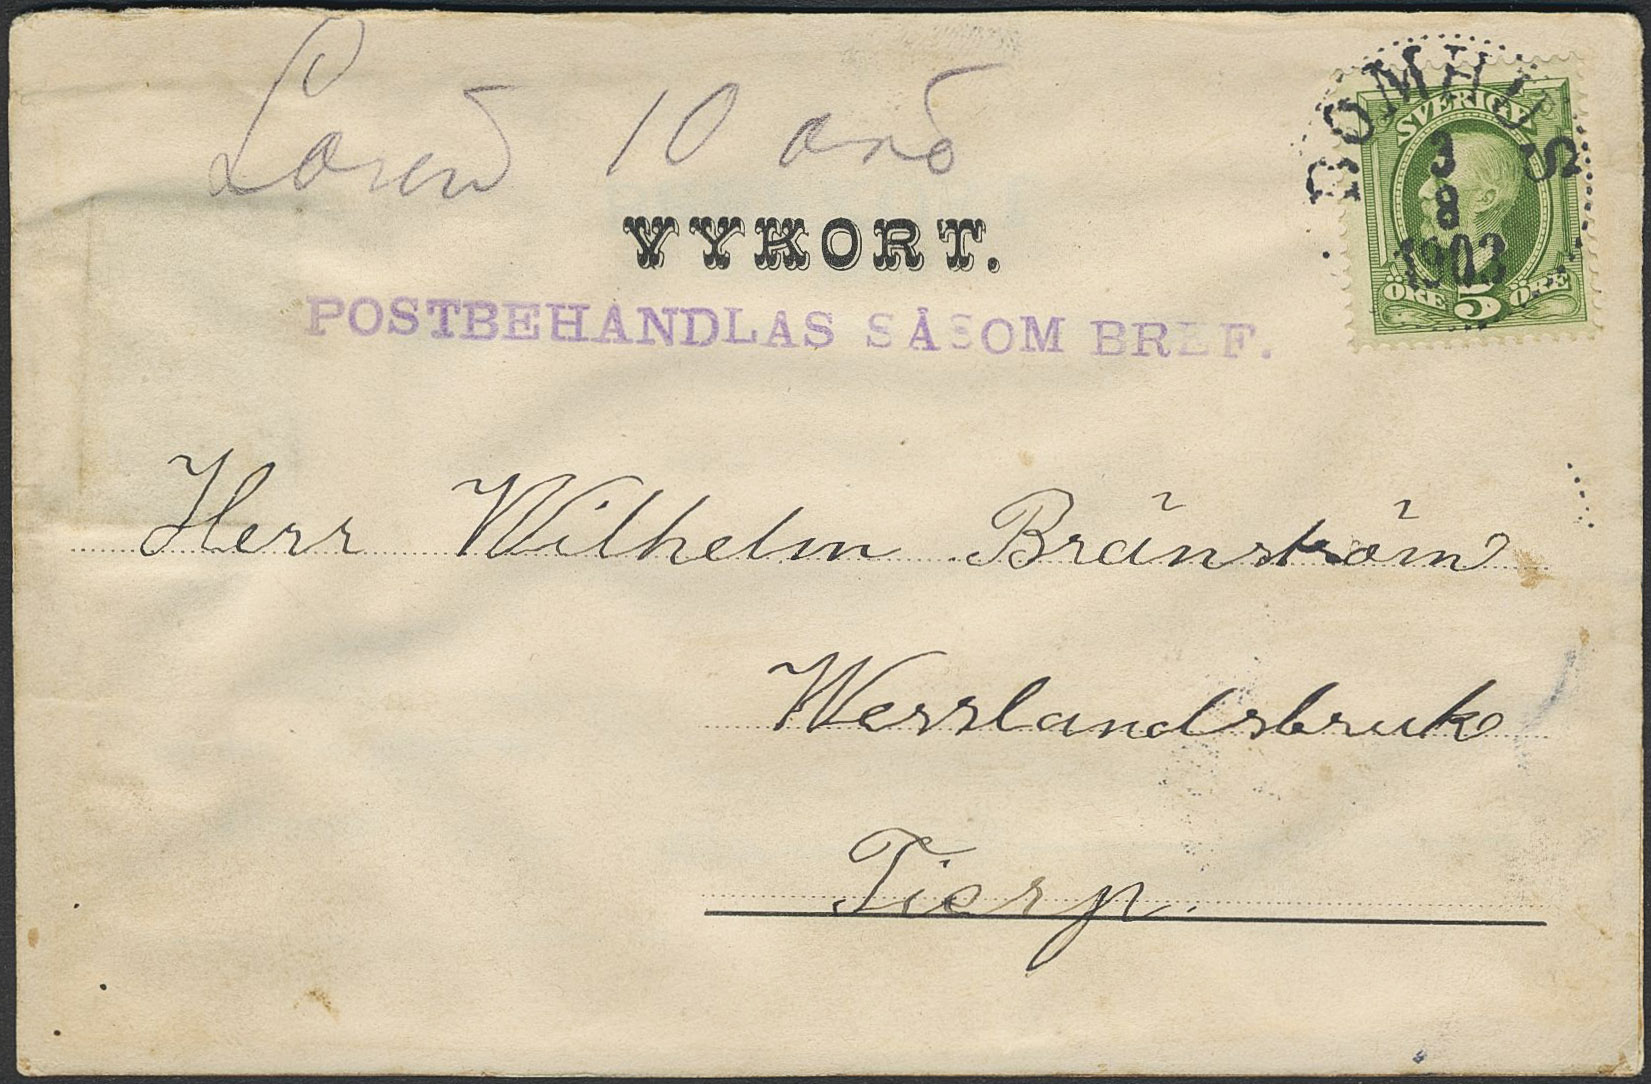 Lösen 10 öre
VYKORT.
POSTBEHANDLAS SÅSOM BREF.
BOMHUS
3
8
1903
SVERIGE
ÖRE 5 ÖRE
Herr Wilhelm Bränström
Wesslandsbruk
Tierp.